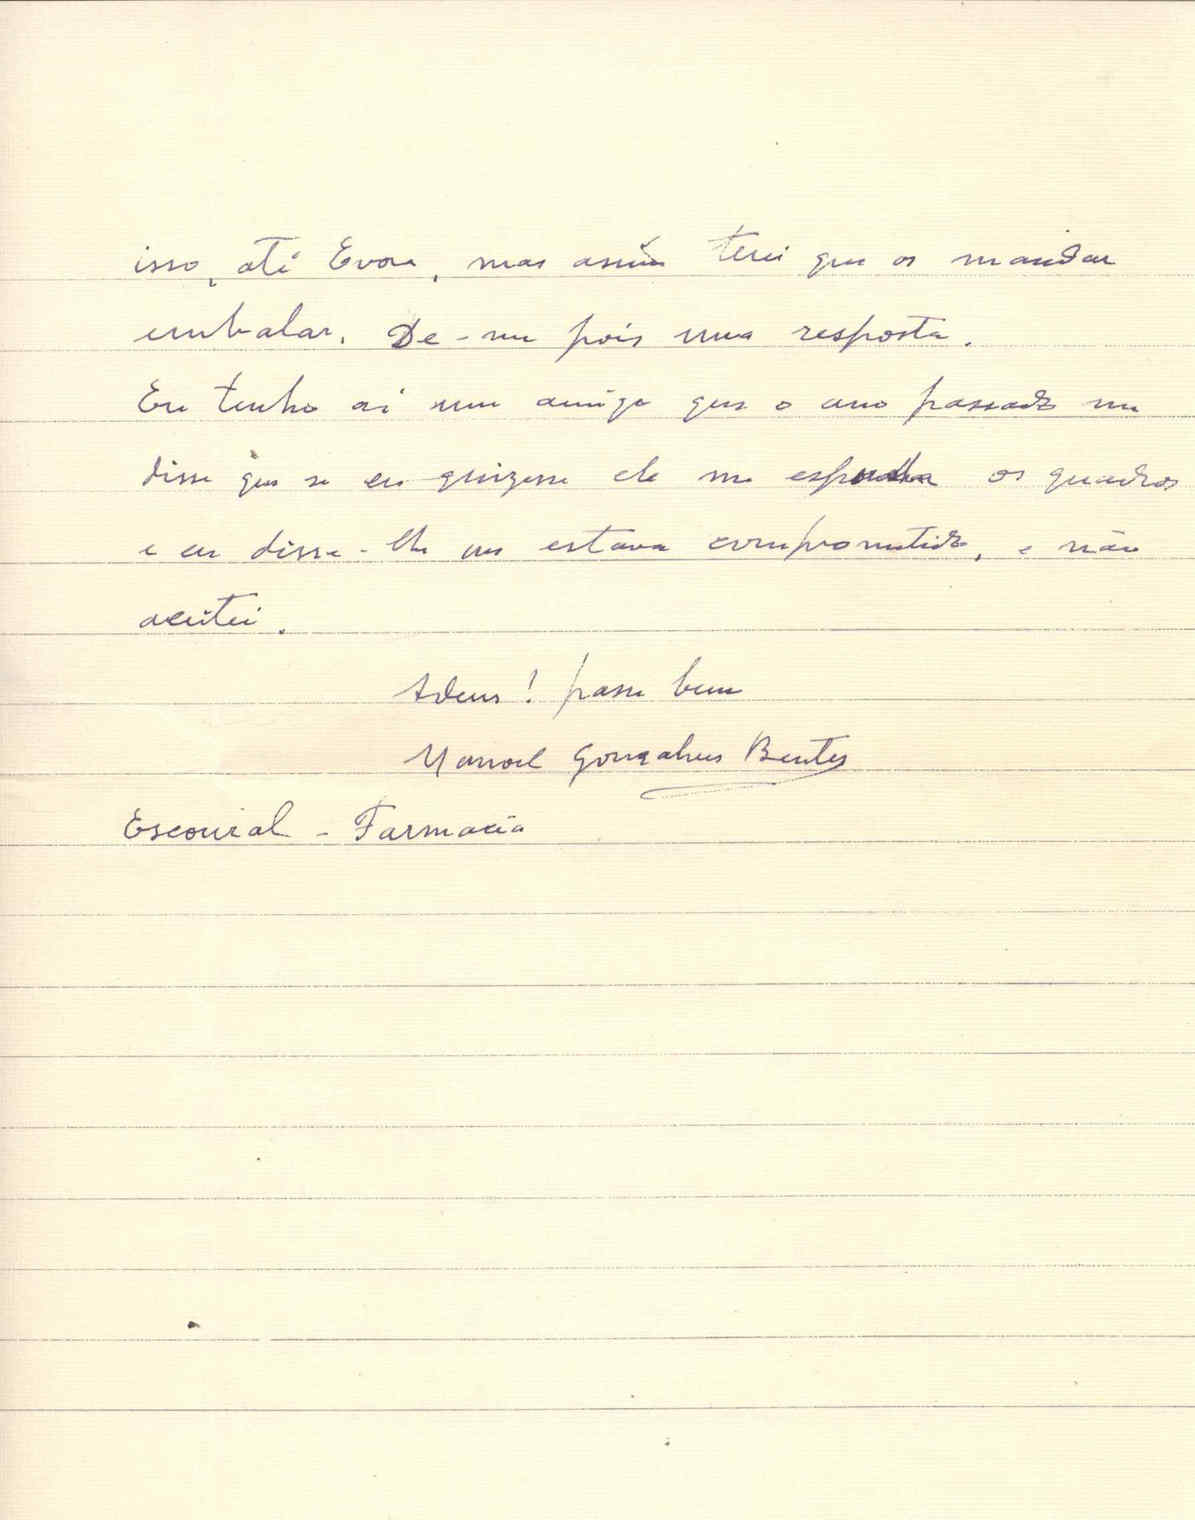 isso, até Evora, mas assim terei que os mandar
embalar. De-me pois uma resposta.
Eu tenho ai um amigo que o ano passado me
disse que se eu quizesse ele me os quadros
e eu disse-lhe estava comprometido, e não
aceitei.
Adeus! passe bem
Manoel Gonçalves Bentes
Escoural - Farmacia